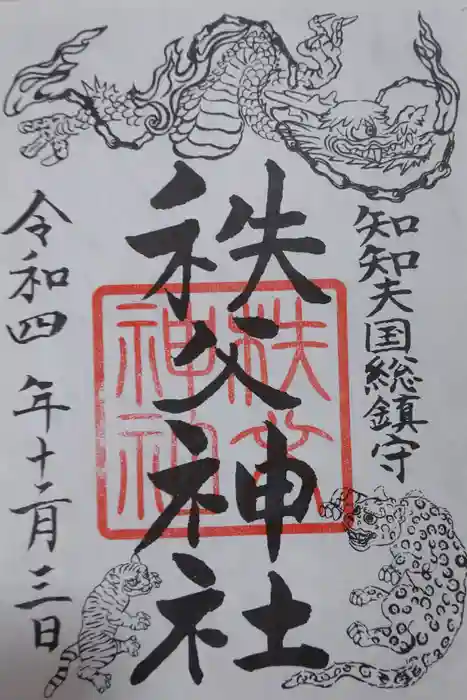 知知夫国総鎮守
秩父神社
令和四年十二月三日
秩父
神社